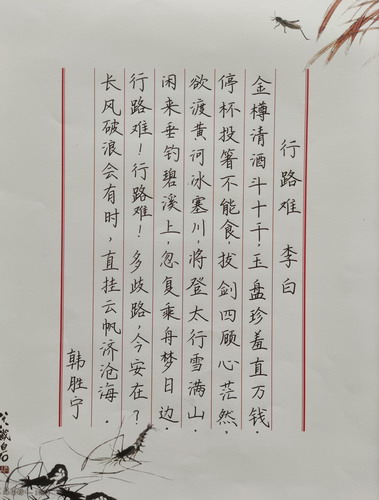 行路难 李白
金樽清酒斗十千,玉盘珍羞直万钱.
停杯投箸不能食,拔剑四顾心茫然.
欲渡黄河冰塞川,将登太行雪满山.
闲来垂钓碧溪上,忽复乘舟梦日边.
行路难!行路难!多歧路,今安在?
长风破浪会有时,直挂云帆济沧海.
韩胜宁